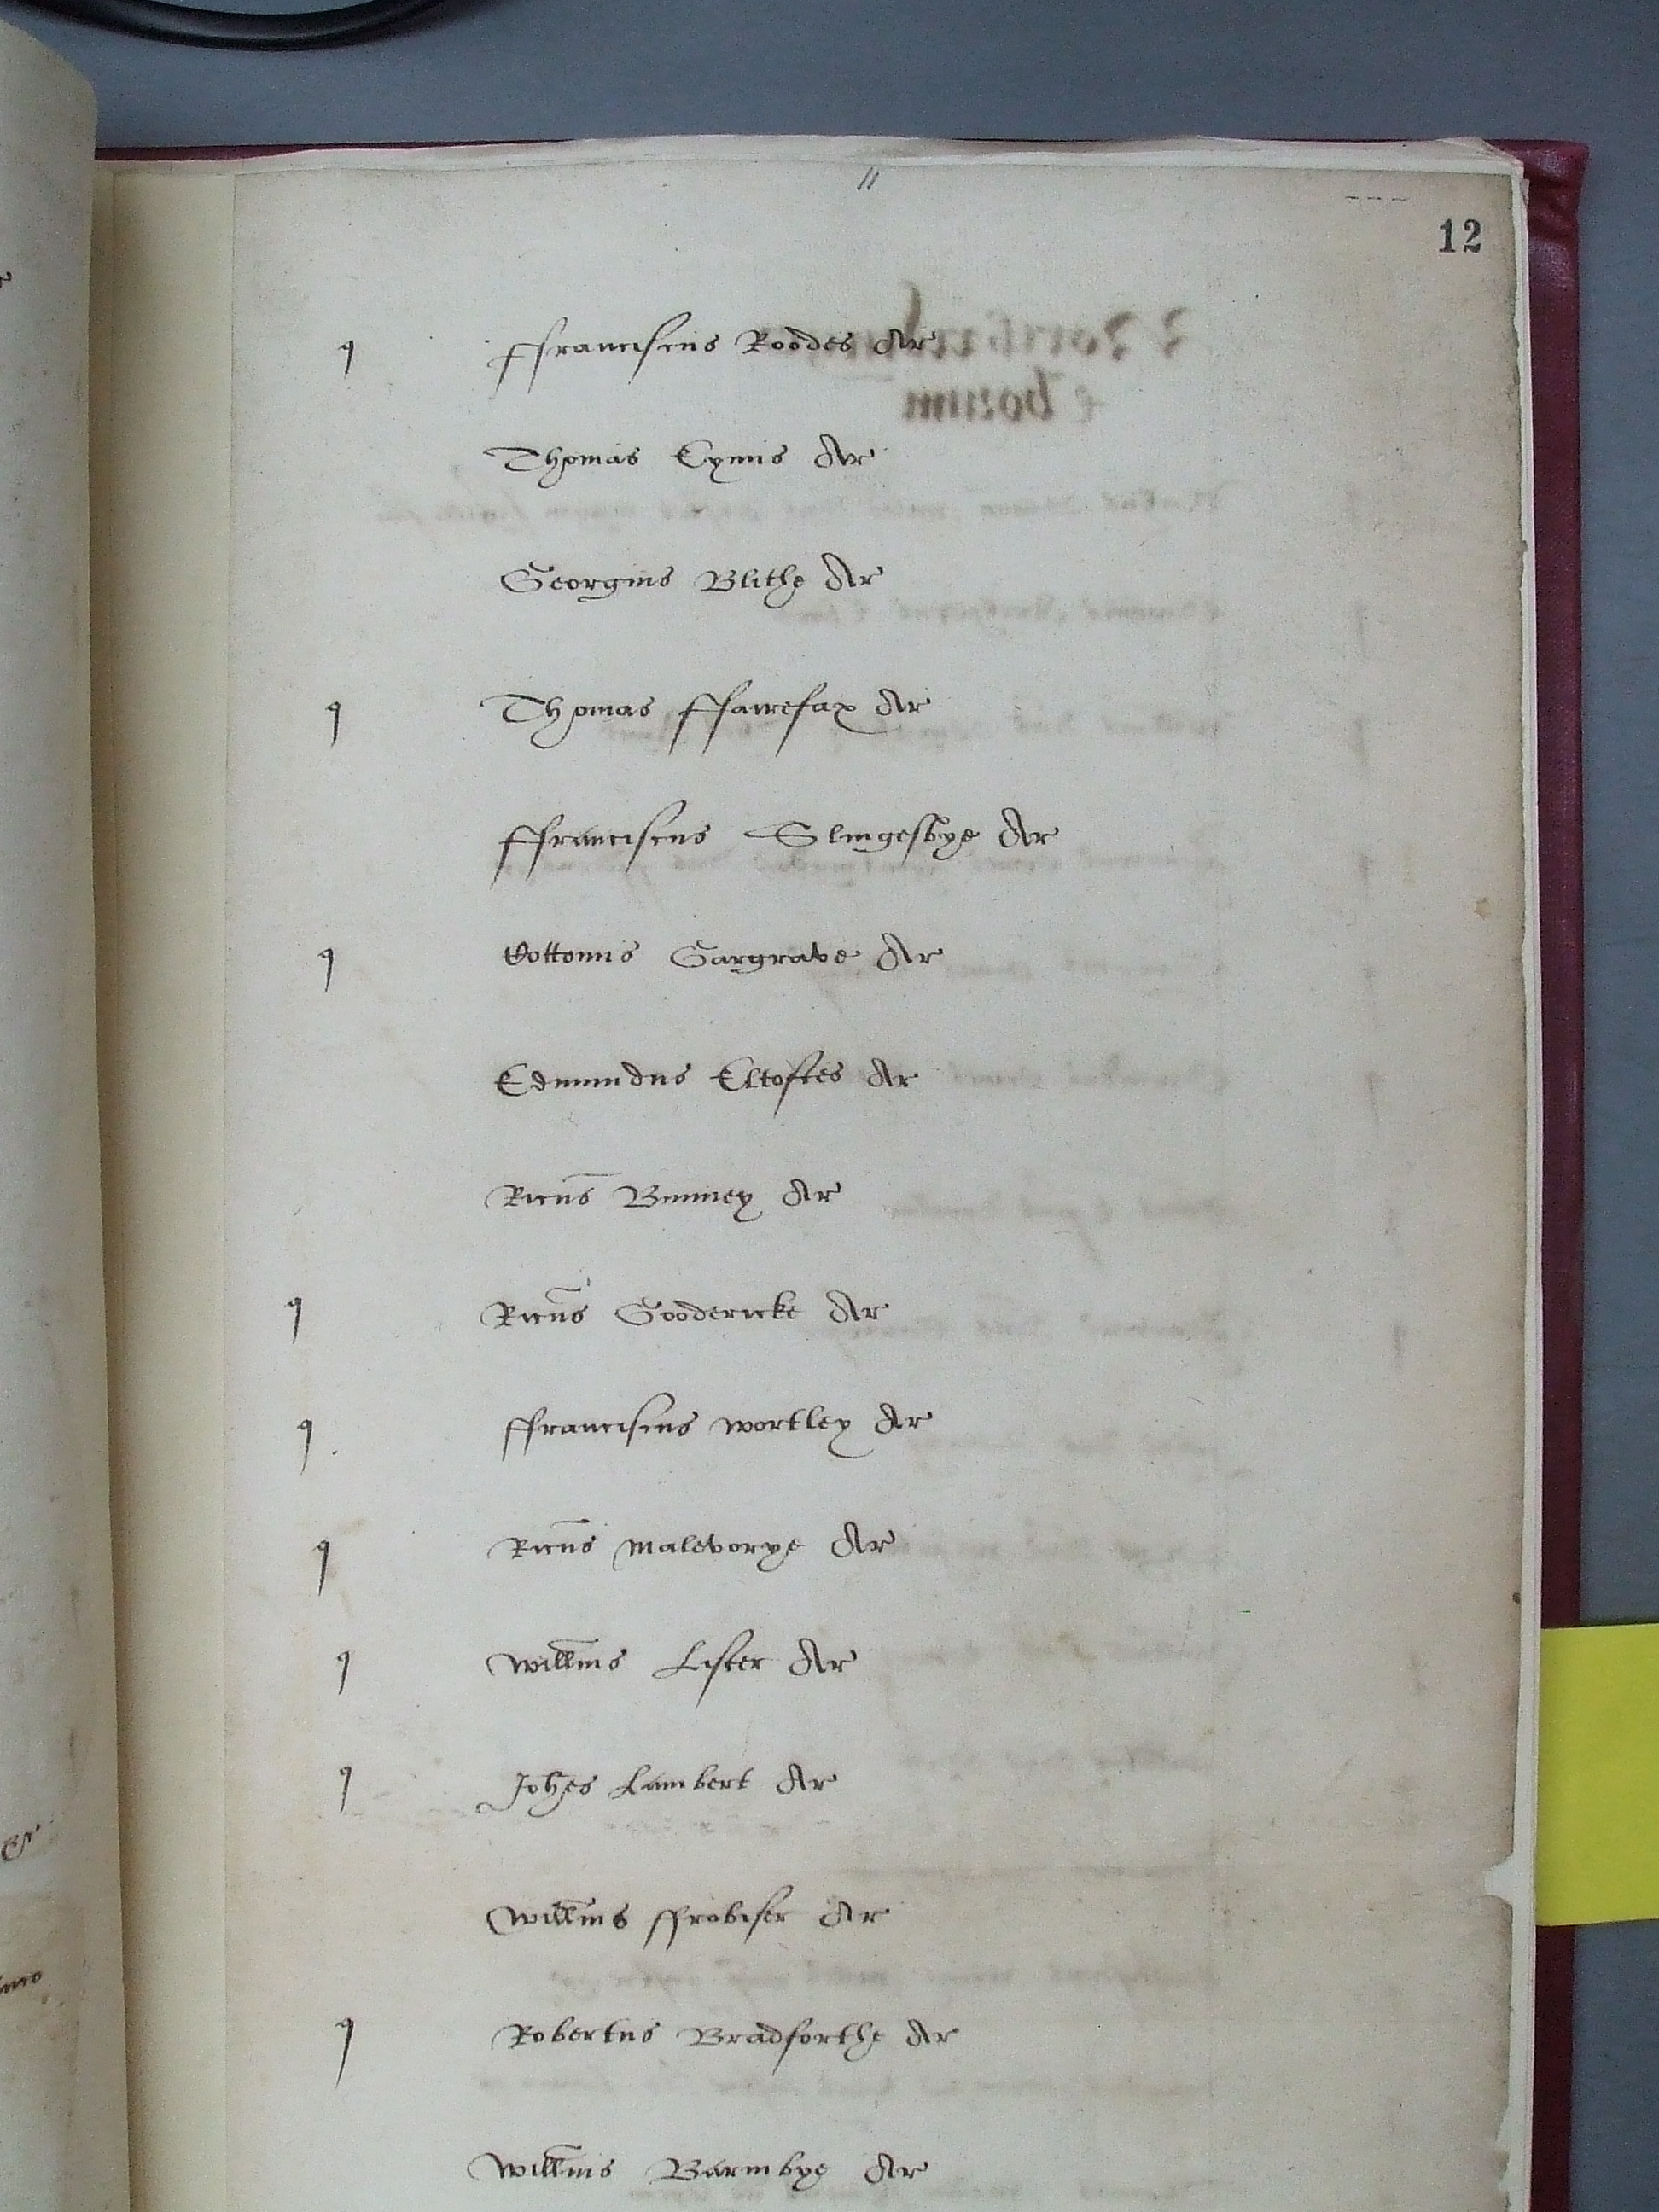 11
12
q ffranciscus Roodes Ar
Thomas Eynns Ar
Georgius Blithe Ar
q Thomas ffairefax Ar
ffranciscus Slingesbye Ar
q Cottonus Gargrave Ar
Edmundus Eltoftes Ar
Ricus Bunney Ar
q Ricus Goodericke Ar
q ffranciscus wortley Ar
q Ricus Malevorye Ar
q Willmus Lister Ar
q Johes Lambert Ar
Willmus ffrobiser Ar
q Robertus Bradforthe Ar
Willmus Barmbye Ar